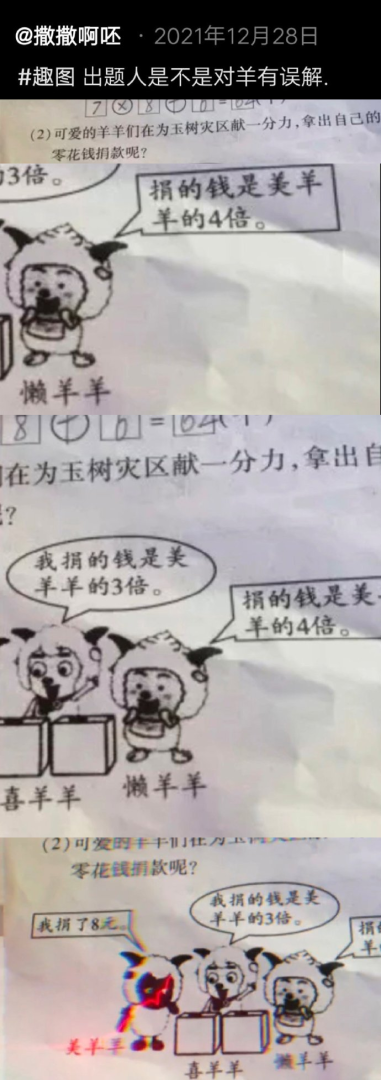 @撒撒啊呸 · 2021年12月28日
#趣图 出题人是不是对羊有误解.
7 × 8 + 8 = 64(个)
(2)可爱的羊羊们在为玉树灾区献一分力,拿出自己的
零花钱捐款呢?
的3倍。
捐的钱是美羊
羊的4倍。
懒羊羊
在为玉树灾区献一分力,拿出自
?
我捐的钱是美
羊羊的3倍。
捐的钱是美
羊的4倍。
喜羊羊
懒羊羊
(2)可爱的羊羊们在为玉树灾区
零花钱捐款呢?
我捐的钱是美
羊羊的3倍。
我捐了8元。
捐的
羊
美羊羊
喜羊羊
懒羊羊